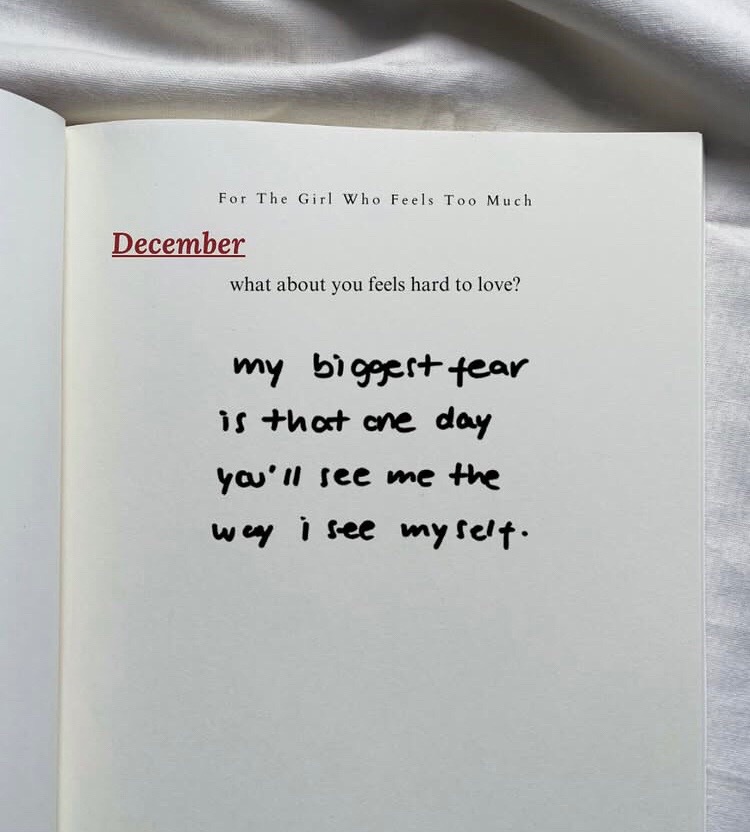 For The Girl Who Feels Too Much
December
what about you feels hard to love?
my biggest fear
is that one day
you'll see me the
way i see myself.